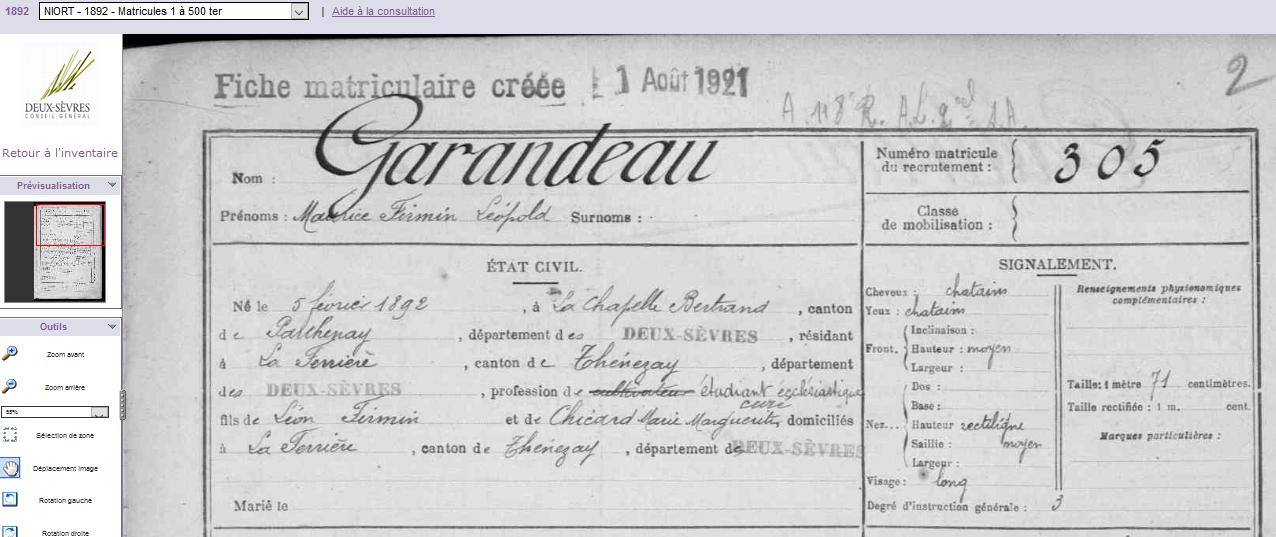 1892 NIORT - 1892 - Matricules 1 à 500 ter | Aide à la consultation
DEUX-SÈVRES
CONSEIL GÉNÉRAL
Retour à l'inventaire
Prévisualisation
Outils
Zoom avant
Zoom arrière
55%
Sélection de zone
Déplacement image
Rotation gauche
Rotation droite
Fiche matriculaire créée 1 Août 1921
2
A 118e R. A. L.
Nom : Garandeau
Prénoms : Maurice Firmin Léopold Surnoms :
Numéro matricule
du recrutement : 305
Classe
de mobilisation :
ÉTAT CIVIL.
Né le 5 février 1892, à La Chapelle Bertrand, canton
de Parthenay, département des DEUX-SÈVRES, résidant
à La Ferrière, canton de Thénezay, département
des DEUX-SÈVRES, profession de cultivateur étudiant écclésiastique
curé
fils de Léon Firmin et de Chicard Marie Marguerite, domiciliés
à La Ferrière, canton de Thénezay, département des DEUX-SÈVRES
Marié le
SIGNALEMENT.
Cheveux : chatains
Yeux : chatains
Front. Inclinaison :
Hauteur : moyen
Largeur :
Nez... Dos :
Base :
Hauteur rectiligne
Saillie : moyen
Largeur :
Visage : long
Degré d'instruction générale : 3
Renseignements physionomiques
complémentaires :
Taille : 1 mètre 71 centimètres.
Taille rectifiée : 1 m. cent.
Marques particulières :